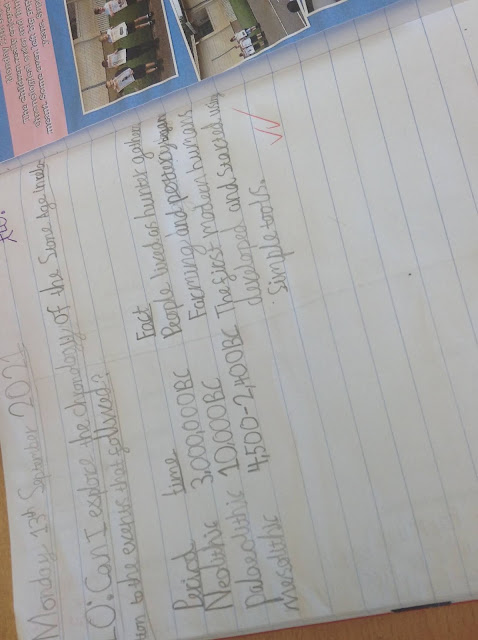 Monday 13th September 2021
O: Can I explore the chronology of the Stone Age in rela
tion to the events that followed?
Period time Fact
Neolithic 3,000,000BC People lived as hunter gather
Palaeolithic 10,000BC Farming and pottery began
Mesolithic 4,500-2,400BC The first modern humans
developed and started using
simple tools.